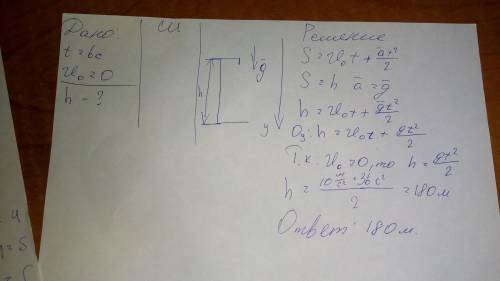 Дано:
t = 6c
υ₀ = 0
h - ?
СИ
h
g̅
y
Решение
S = υ₀t + a̅t²/2
S = h a̅ = g̅
h = υ₀t + g̅t²/2
Oy: h = υ₀t + gt²/2
Т.к. υ₀ = 0, то h = gt²/2
h = 10 м/с² * 36 с² / 2 = 180 м
Ответ: 180 м.
= 4
= 5